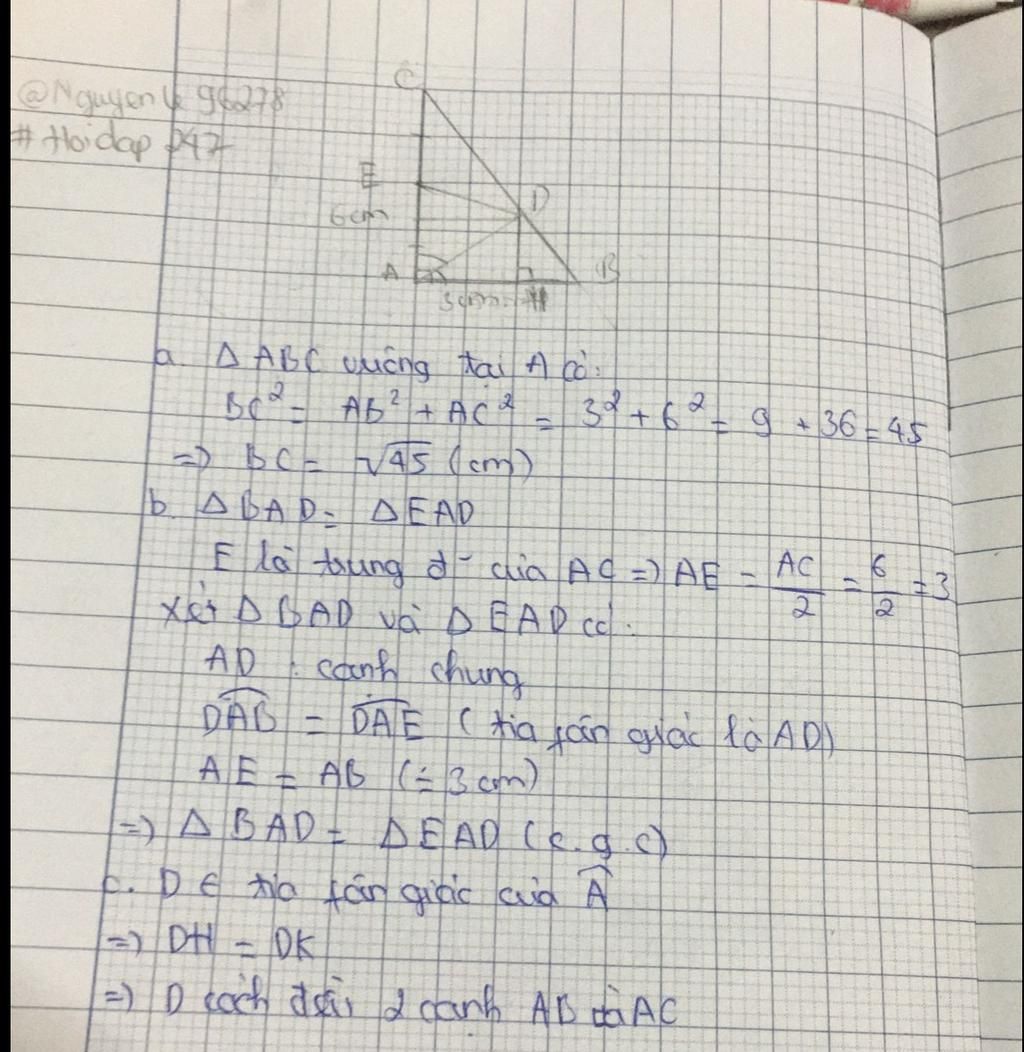 @Nguyen Le 96278
# Hoidap 247
C
E
D
6cm
A
B
3cm
H
a. Δ ABC vuông tại A có:
BC² = AB² + AC² = 3² + 6² = 9 + 36 = 45
=> BC = √45 (cm)
b. Δ BAD = Δ EAD
E là trung đ' của AC => AE = AC/2 = 6/2 = 3
Xét Δ BAD và Δ EAD có:
AD : cạnh chung
DAB = DAE (tia fân giác là AD)
AE = AB (= 3 cm)
=> Δ BAD = Δ EAD (c.g.c)
c. D ∈ tia fân giác của A
=> DH = DK
=> D cách đều 2 cạnh AB và AC